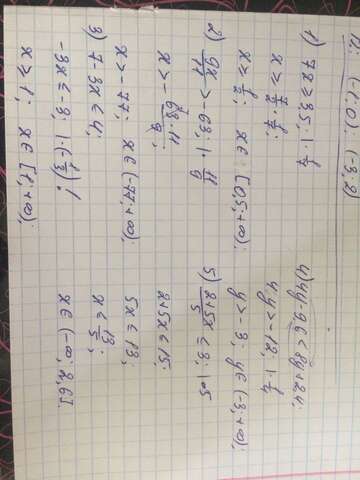 (-1; 0); (3; 2)
1) 7x ≥ 3,5; | · 1/7
x ≥ 7/2 · 1/7;
x ≥ 1/2; x ∈ [0,5; +∞);
2) 9x/11 > -63; | · 11/9
x > - 63·11/9;
x > -77; x ∈ (-77; +∞);
3) 7-3x ≤ 4;
-3x ≤ -3; | · (-1/3) !
x ≥ 1; x ∈ [1; +∞);
4) 4y-9,6 < 8y+2,4;
4y > -12; | · 1/4
y > -3; y ∈ (-3; +∞);
5) 2+5x/5 ≤ 3; | · 5
2+5x ≤ 15;
5x ≤ 13;
x ≤ 13/5;
x ∈ (-∞; 2,6]